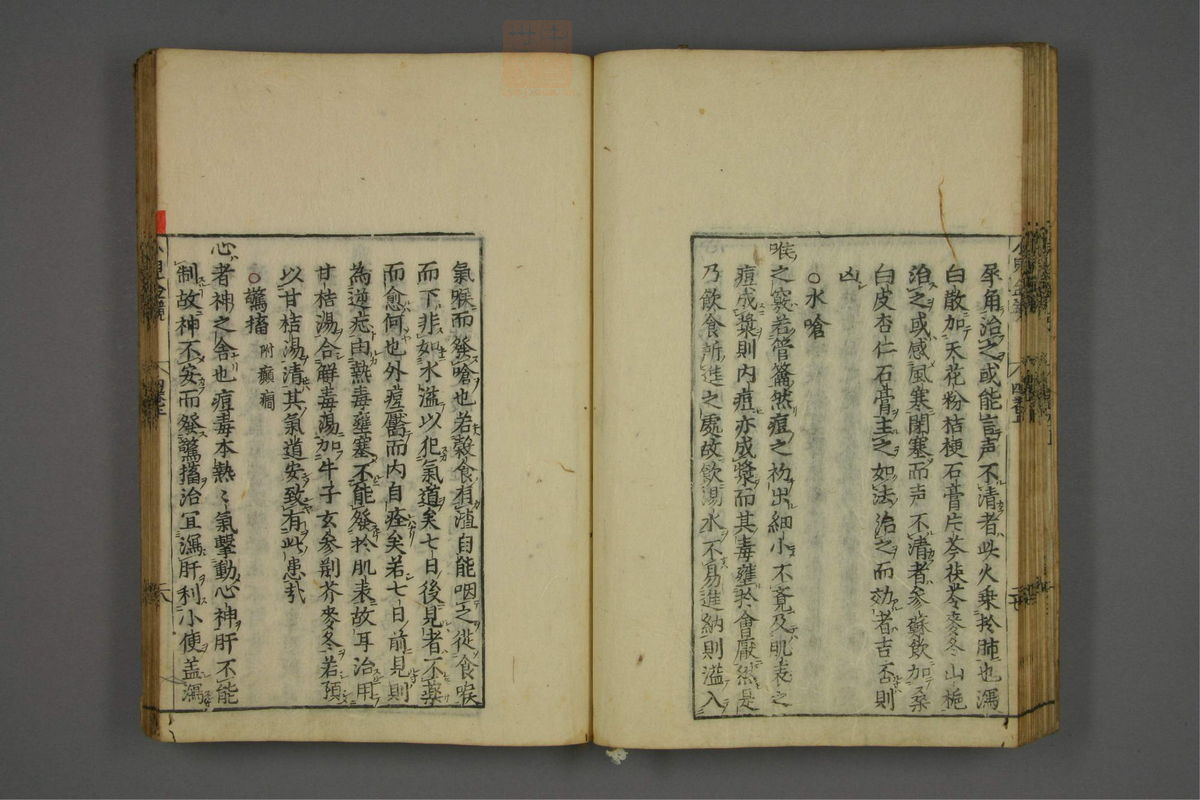 犀角治之或能言声不清者此火乗於肺也瀉
白散加天花粉桔梗石膏片芩茯苓麥冬山梔
治之或感風寒閉塞而声不清者参蘇飲加桑
白皮杏仁石膏主之如法治之而効者吉否則
凶
○水嗆
喉之竅若管籥然痘之初出細小不竟及肌表之
痘成漿則内痘亦成漿而其毒壅於會厭然是
乃飲食所進之處故飲湯水不易進納則溢入
氣喉而發嗆也若穀食有渣自能咽之從食喉
而下非如水溢以犯氣道矣七日後見者不藥
而愈何也外痘靨而内自痊矣若七日前見則
為逆症由熱毒壅塞不能發於肌表故耳治用
甘桔湯合解毒湯加牛子玄参荆芥麥冬若預
以甘桔湯清其氣道安致有此患哉
○驚搐 附癲癇
心者神之舎也痘毒本熱〻氣撃動心神肝不能
制故神不安而發驚搐治宜瀉肝利小便盖瀉